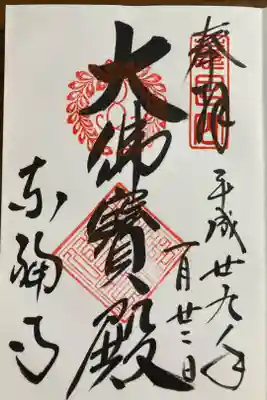 奉拝
平成廿九年
一月廿二日
大佛寶殿
東福寺